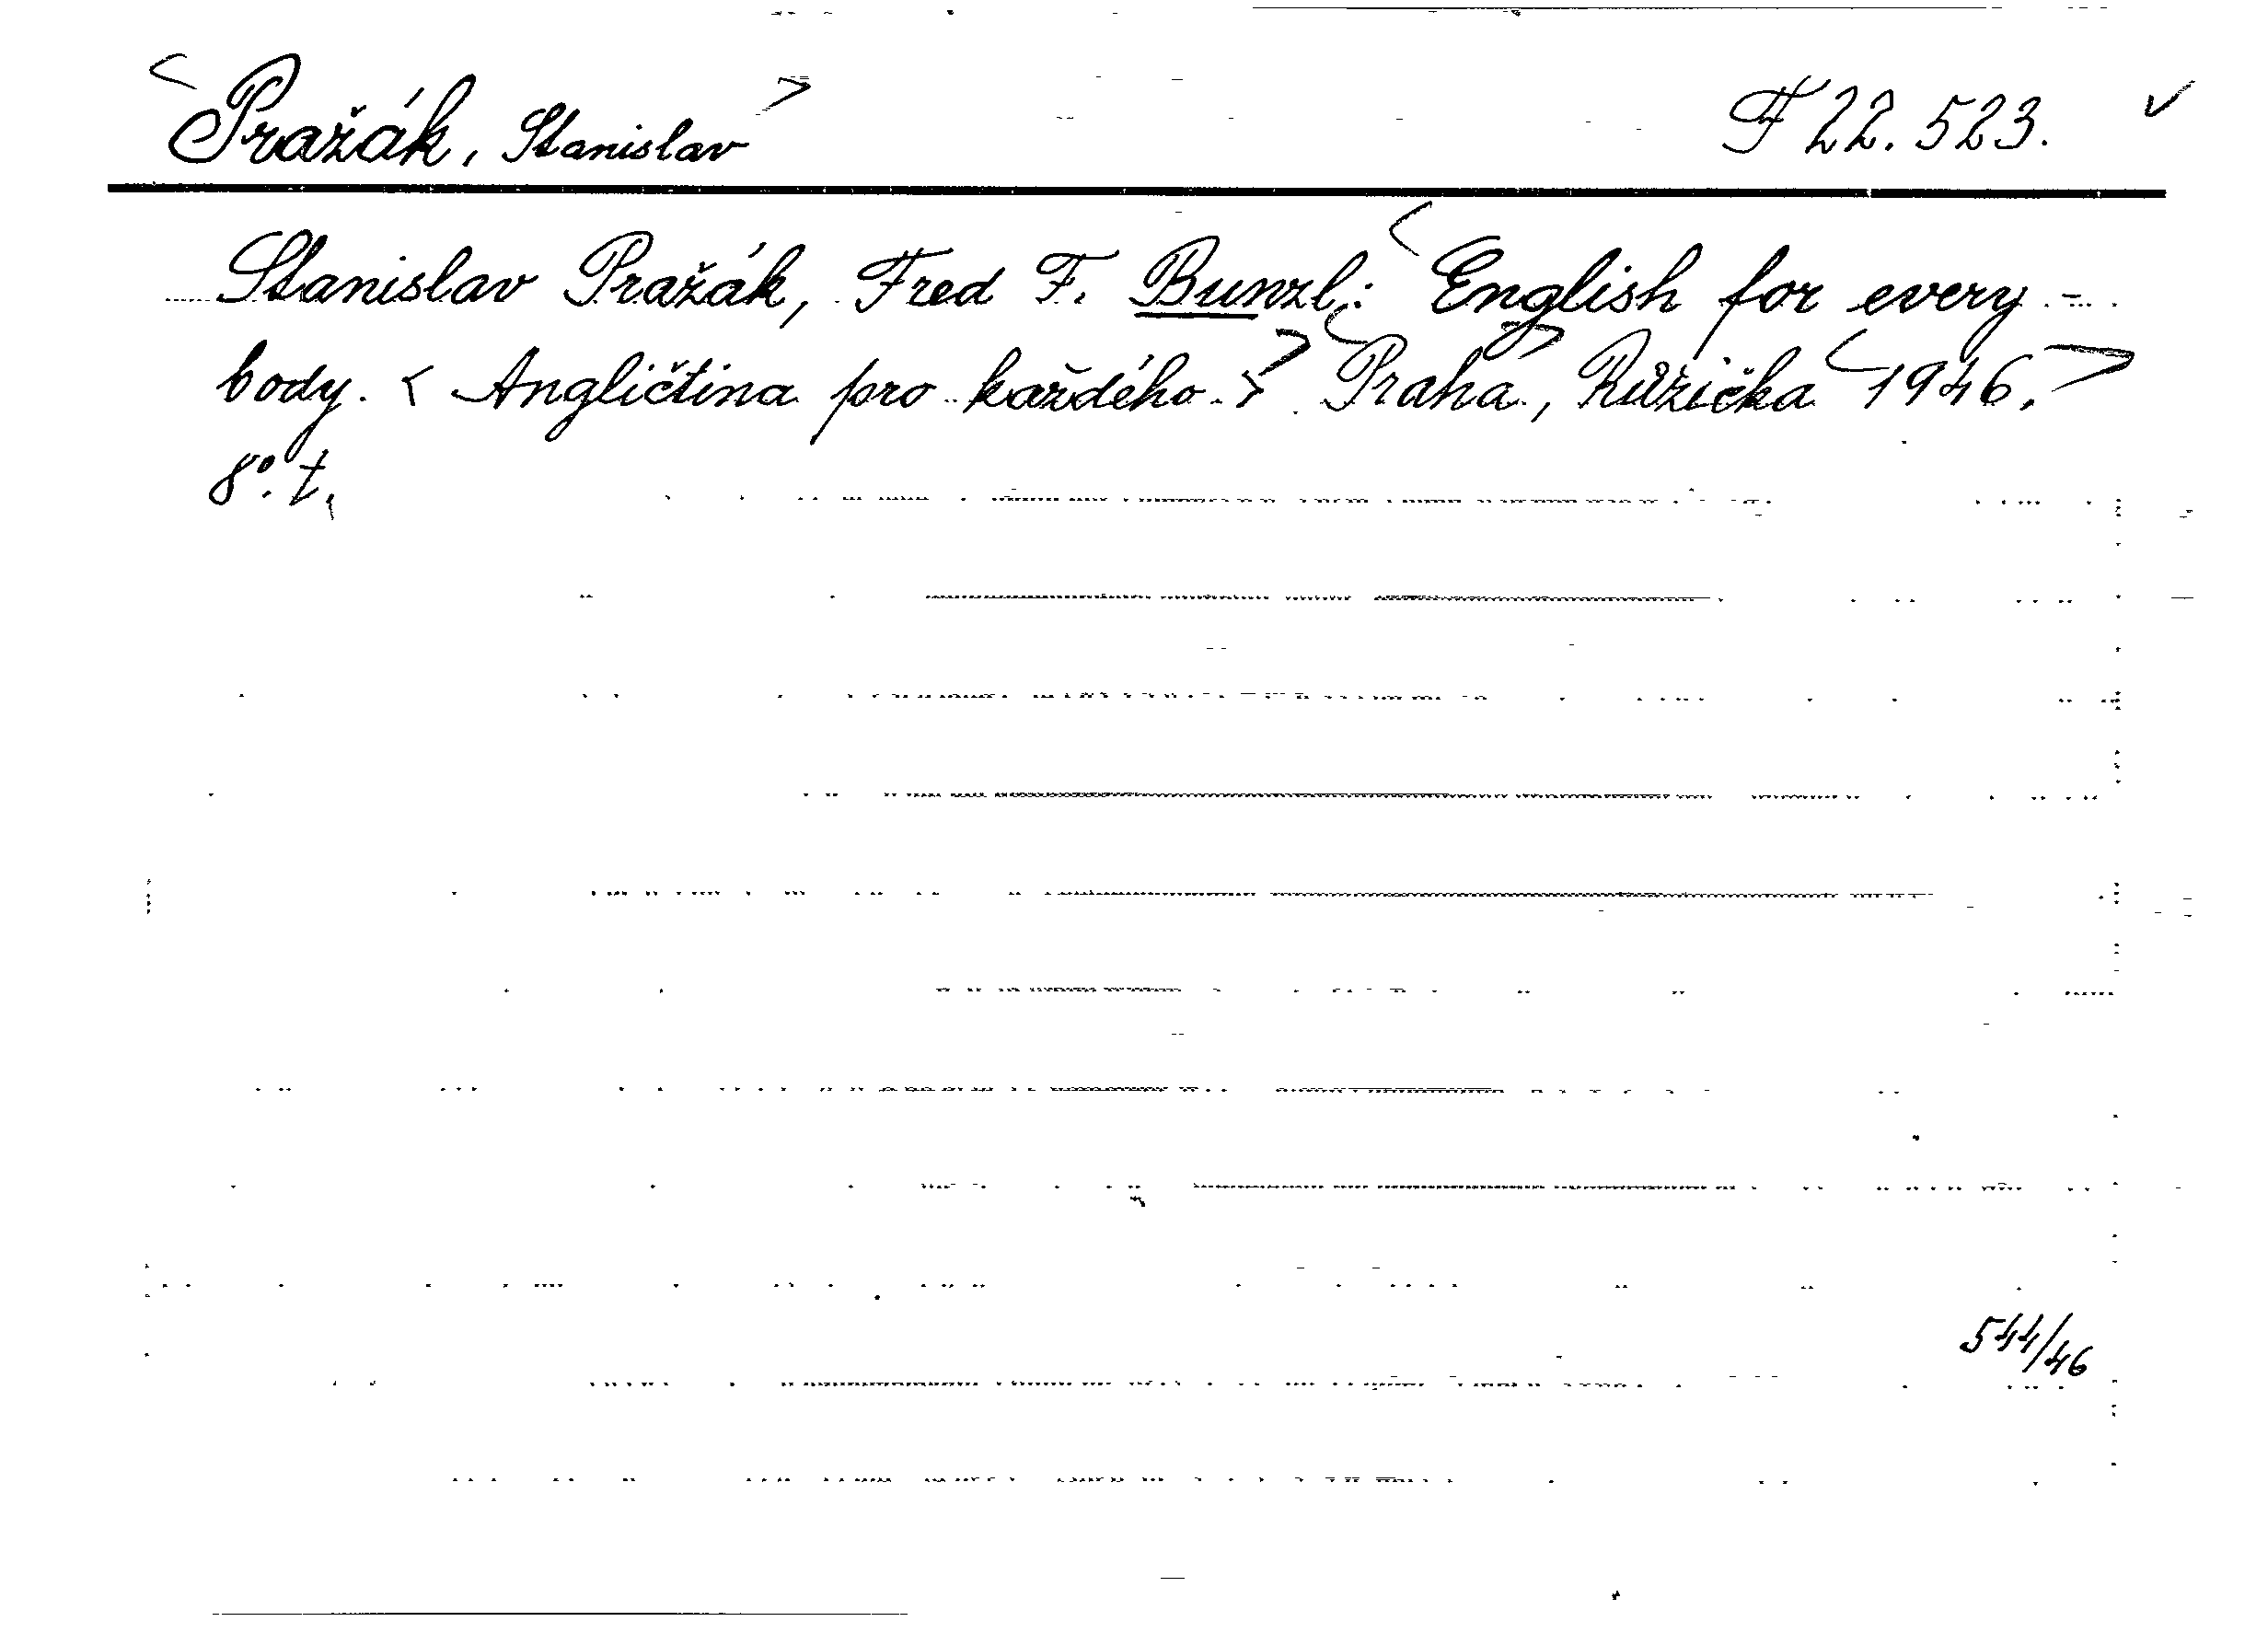 < Pražák, Stanislav > F 22.523. ✓
Stanislav Pražák, Fred F. Bunzl: < English for every-
body. < Angličtina pro každého. > > < Praha >, Růžička < 1946. >
8°. t.
544/46